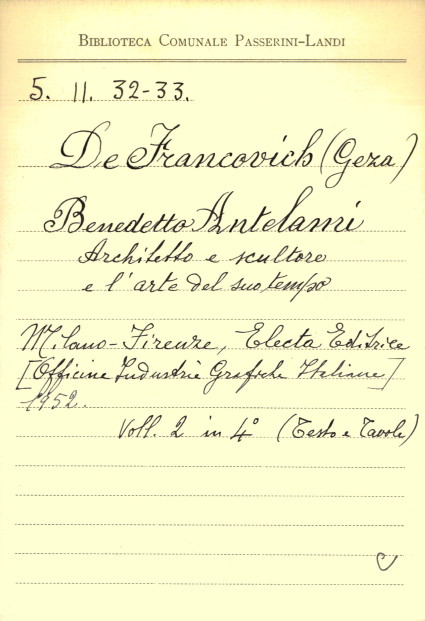 BIBLIOTECA COMUNALE PASSERINI-LANDI
5. 11. 32-33.
De Francovich (Geza)
Benedetto Antelami
Architetto e scultore
e l'arte del suo tempo
Milano-Firenze, Electa Editrice
[Officine Industrie Grafiche Italiane]
1952.
Voll. 2 in 4° (Testo e Tavole)